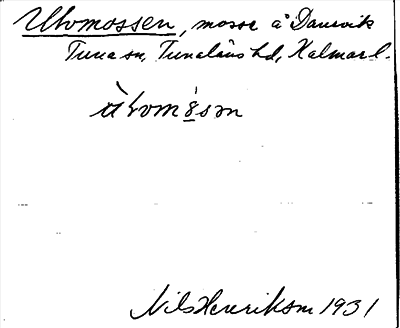 Utvomossen, mosse å Danevik
Tuna sn, Tunaläns hd, Kalmar l.
ùtvom&#x27;o̲sm
Nils Henriksm 1931